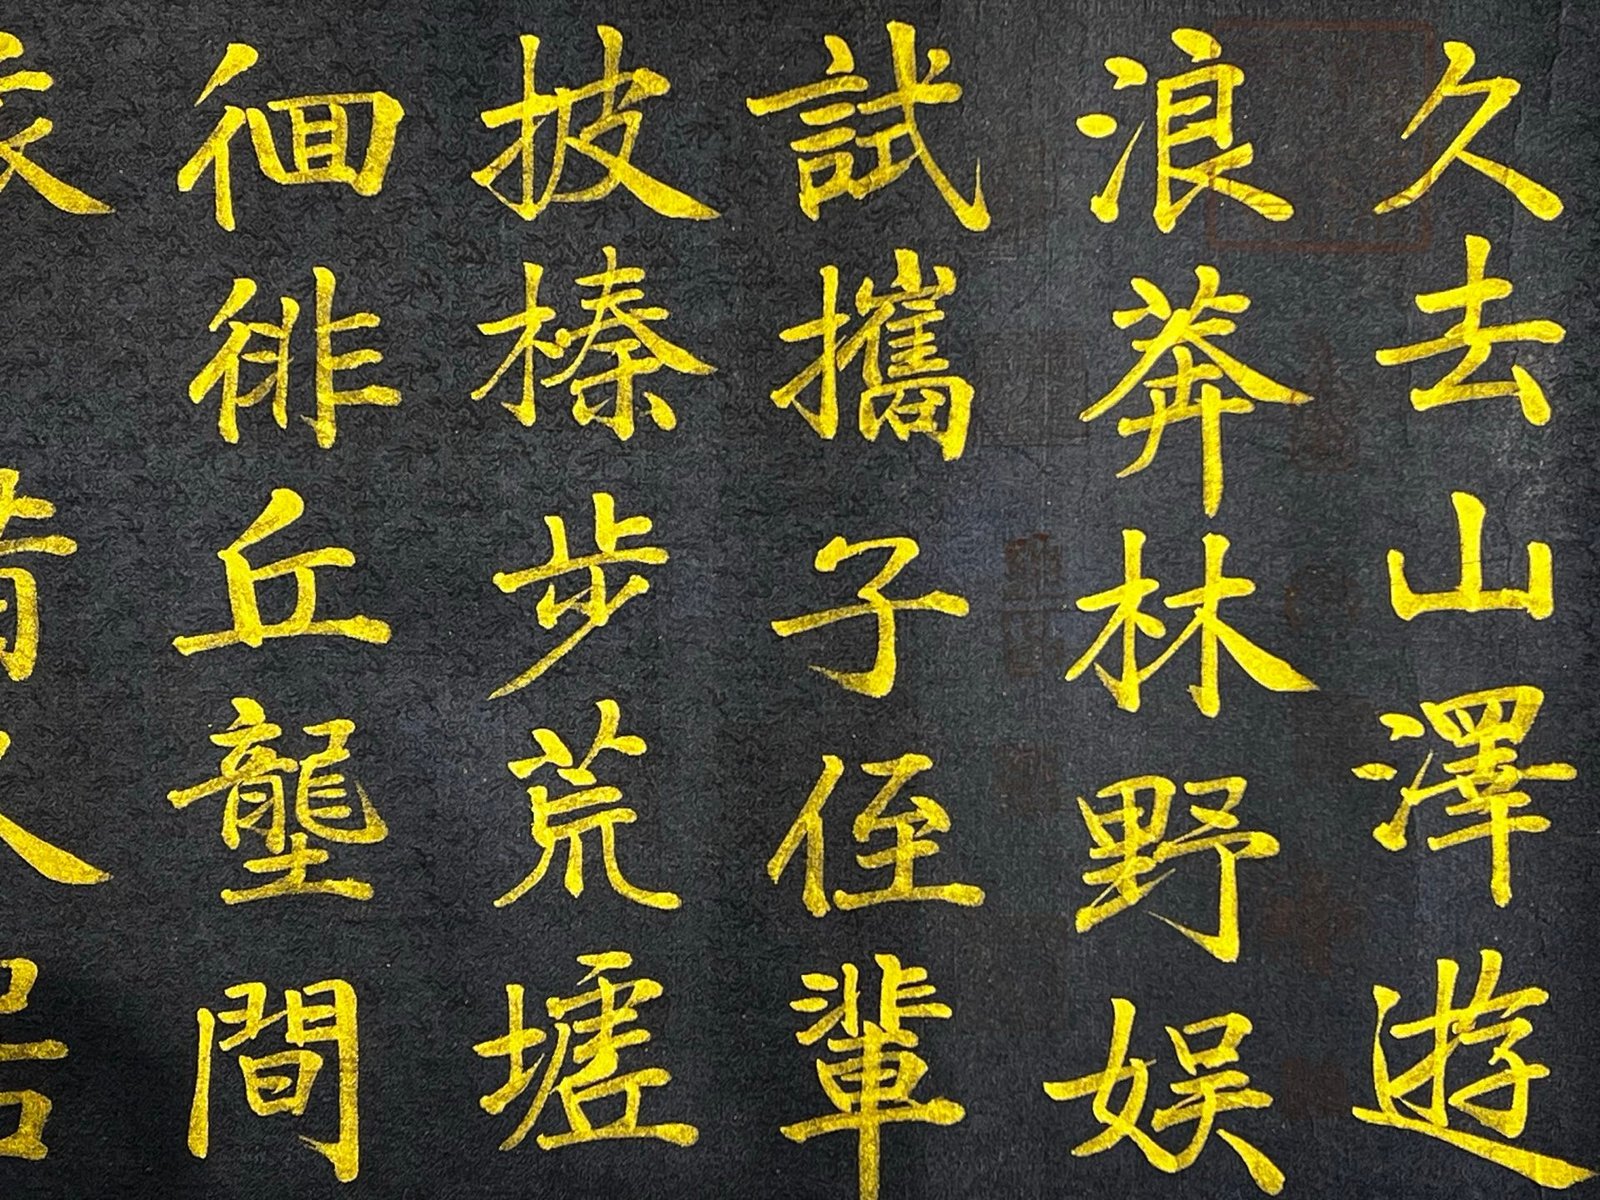 久去山澤遊
浪莽林野娛
試攜子侄輩
披榛步荒墟
徊徘丘壟間